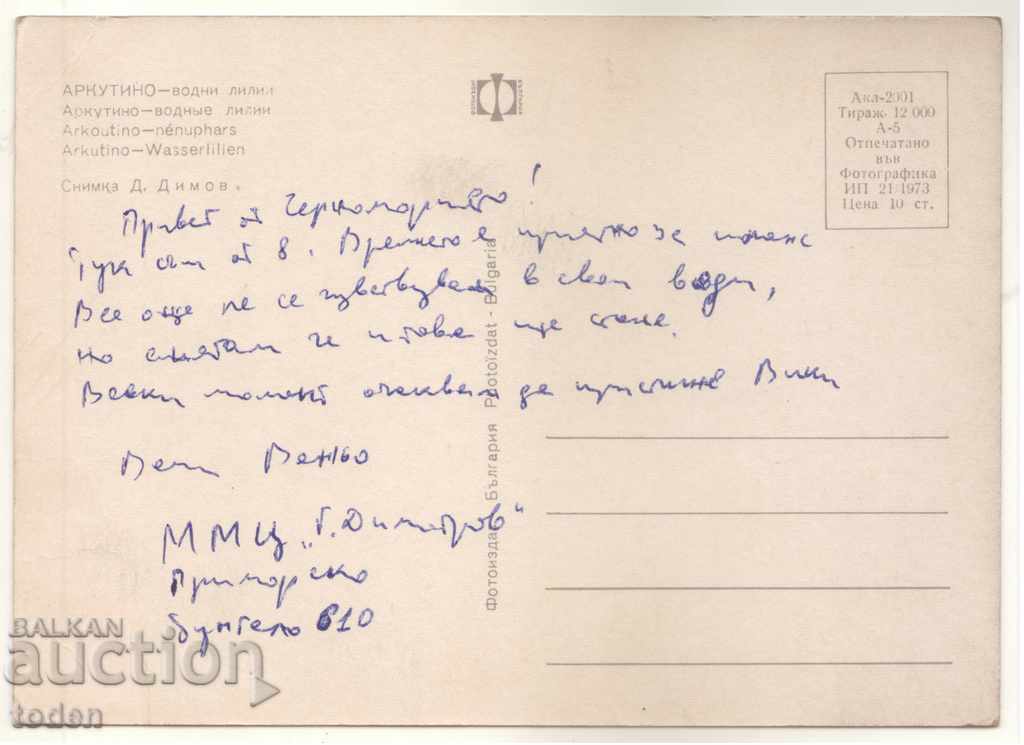 АРКУТИНО—водни лилии
Аркутино—водные лилии
Arkoutino—nénuphars
Arkutino—Wasserlilien
Снимка Д. Димов.
ФОТОИЗДАТ
БЪЛГАРИЯ
Акл-2001
Тираж 12 000
А-5
Отпечатано
във
Фотографика
ИП 21 1973
Цена 10 ст.
Привет от Черноморието!
Тук съм от 8. Времето е приятно за
Все още не се чувствувам в свои води,
но смятам че и това ще стане.
Всеки момент очаквам да пристигне Вики
Ваш
ММЦ „Г. Димитров“
Приморско
бунгало 610
Фотоиздат България Photoïzdat - Bulgaria
BALKAN
auction
toden